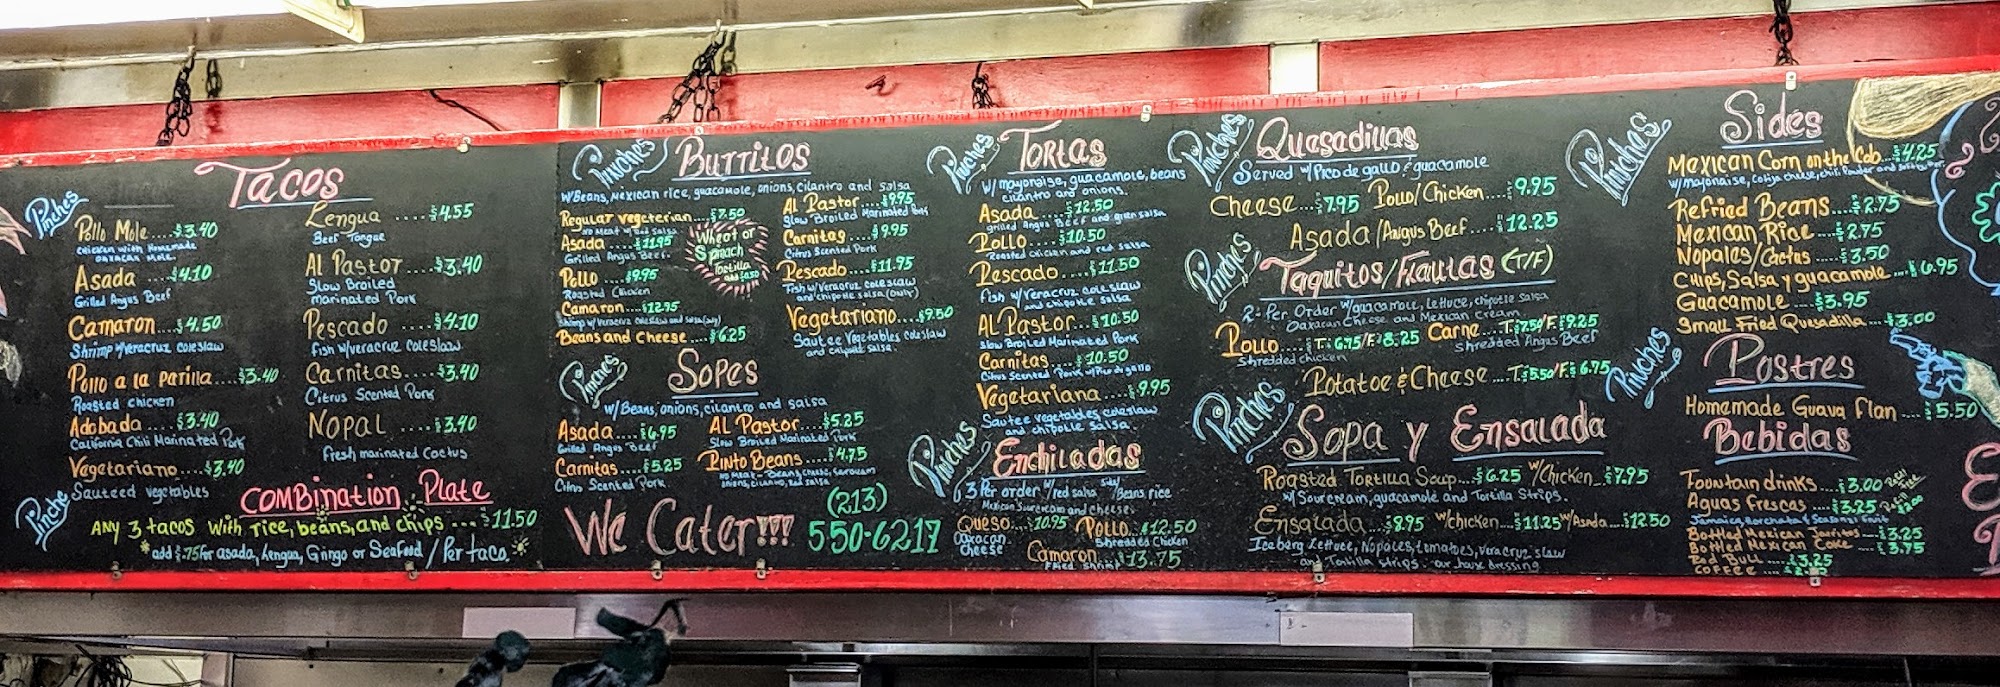 Tacos
Pinches
Pollo Mole....$3.40
Chicken with Homemade
Oaxacan Mole.
Asada ....$4.10
Grilled Angus Beef
Camaron....$4.50
Shrimp w/veracruz coleslaw
Pollo a la parilla....$3.40
Roasted chicken
Adobada ....$3.40
California Chili Marinated Pork
Vegetariano....$3.40
Sauteed vegetables
Lengua ....$4.55
Beef Tongue
Al Pastor ....$3.40
Slow Broiled
Marinated Pork
Pescado ....$4.10
Fish w/veracruz coleslaw
Carnitas....$3.40
Citrus Scented Pork
Nopal ....$3.40
Fresh marinated Cactus
Pinche
Combination Plate
Any 3 tacos with rice, beans, and chips ... $11.50
*add $.75 for asada, Lengua, Gringo or Seafood / Per taco.*
Pinches
Burritos
w/Beans, Mexican rice, guacamole, onions, cilantro and salsa
Regular vegeterian....$7.50
NO Meat w/red salsa
Asada ....$11.95
Grilled Angus Beef.
Pollo ....$9.95
Roasted Chicken
Camaron....$12.95
Shrimp w/veracruz coleslaw and salsa
Beans and Cheese....$6.25
Wheat or
Spinach
Tortilla
add
Al Pastor....$9.95
Slow Broiled Marinated Pork
Carnitas ....$9.95
Citrus Scented Pork
Pescado ....$11.95
Fish w/veracruz coleslaw
and chipotle salsa (only)
Vegetariano....$9.50
Sautee Vegetables coleslaw
and chipotle salsa.
Pinches
Sopes
w/Beans, onions, cilantro and salsa
Asada ....$6.95
Grilled Angus Beef
Carnitas ....$5.25
Citrus Scented Pork
Al Pastor....$5.25
Slow Broiled Marinated Pork
Pinto Beans....$4.75
NO Meat - Beans, cheese, sourcream
onions, cilantro, red salsa
We Cater!!! (213)
550-6217
Pinches
Tortas
w/mayonaise, guacamole, beans
cilantro and onions.
Asada ....$12.50
grilled Angus Beef and green salsa
Pollo ....$10.50
Roasted Chicken and red salsa
Pescado ....$11.50
Fish w/veracruz coleslaw
and chipotle salsa
AL Pastor ....$10.50
Slow Broiled Marinated Pork
Carnitas ....$10.50
Citrus Scented Pork w/Pico de gallo
Vegetariana....$9.95
Sautee vegetables coleslaw
and chipotle salsa.
Pinches
Enchiladas
3 Per order w/red salsa side/Beans, rice
Mexican Sourcream and cheese.
Queso....$10.95
Oaxacan
Cheese
Pollo....$12.50
Shredded Chicken
Camaron ....$13.75
Fried Shrimp
Pinches
Quesadillas
Served w/Pico de gallo & guacamole
Cheese....$7.95
Pollo/Chicken....$9.95
Asada/Angus Beef....$12.25
Pinches
Taquitos/Flautas (T/F)
2-Per Order w/guacamole, Lettuce, chipotle salsa
Oaxacan Cheese and Mexican Cream
Pollo....T:$6.75/F:$8.25
shredded chicken
Carne ...T:$7.50/F:$9.25
Shredded Angus Beef
Potatoe & Cheese....T:$5.50/F:$6.75
Pinches
Sopa y Ensalada
Roasted Tortilla Soup....$6.25 w/Chicken..$7.95
w/Sourcream, guacamole and Tortilla Strips.
Ensalada ....$8.95 w/chicken...$11.25 w/Asada...$12.50
Iceberg Lettuce, Nopales, tomatoes, veracruz slaw
and Tortilla strips. our house dressing
Pinches
Sides
Mexican Corn on the Cob...$4.25
w/mayonaise, Cotija cheese, chili Powder and
Refried Beans....$2.75
Mexican Rice ....$2.75
Nopales/Cactus ....$3.50
Chips, Salsa y guacamole....$6.95
Guacamole ....$3.95
Small Fried Quesadilla....$3.00
Pinches
Postres
Homemade Guava Flan ....$5.50
Bebidas
Fountain drinks ....$3.00
Aguas Frescas ....$3.25
Jamaica, Horchata & Seasonal Fruit
Bottled Mexican Jarritos....$3.25
Bottled Mexican Coke ....$3.75
Red Bull ....$3.25
Coffee